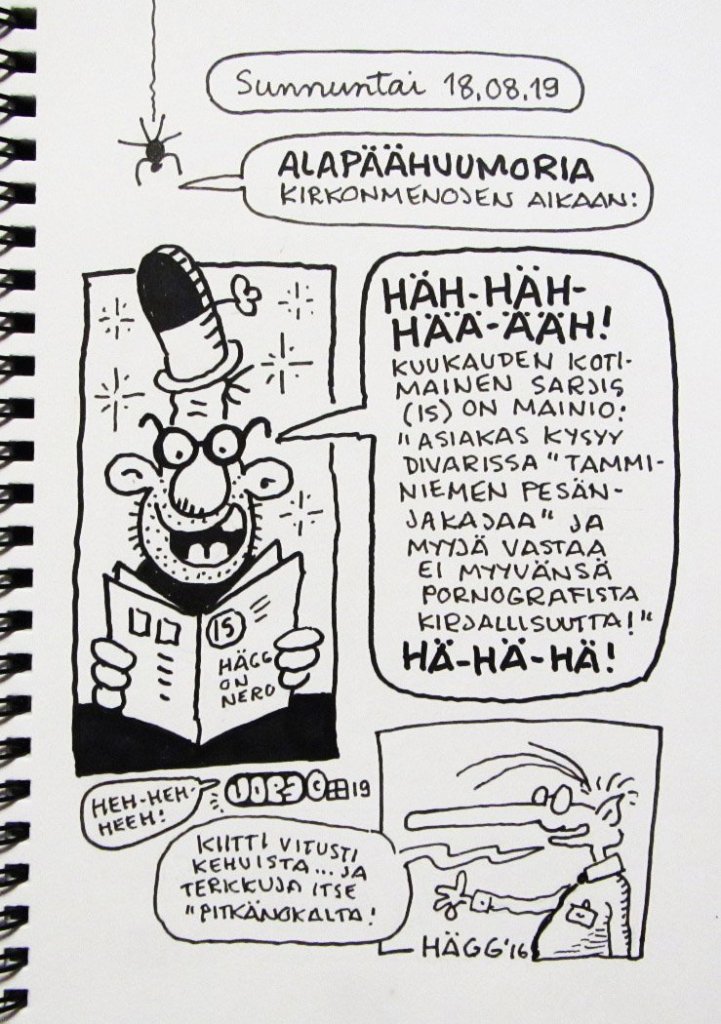 Sunnuntai 18.08.19
ALAPÄÄHUUMORIA
KIRKONMENOJEN AIKAAN:
HÄH-HÄH-
HÄÄ-ÄÄH!
KUUKAUDEN KOTI-
MAINEN SARJIS
(15) ON MAINIO:
"ASIAKAS KYSYY
DIVARISSA "TAMMI-
NIEMEN PESÄN-
JAKAJAA" JA
MYYJÄ VASTAA
EI MYYVÄNSÄ
PORNOGRAFISTA
KIRJALLISUUTTA!"
HÄ-HÄ-HÄ!
15
HÄGG
ON
NERO
HEH-HEH-
HEEH!
JOPJ © 19
KIITTI VITUSTI
KEHUISTA...JA
TERKKUJA ITSE
"PITKÄNOKALTA!
HÄGG'16